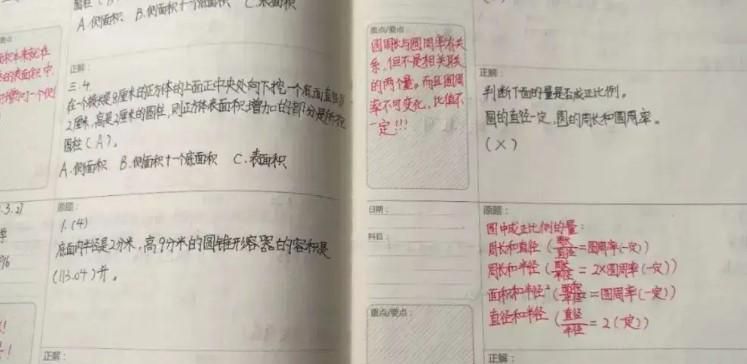 A.侧面积. B.侧面积十个底面积 C.表面积
正解:
三.4.
在一个棱长是3厘米的正方体的上面正中央处向下挖一个底面直径
2厘米,高是2厘米的圆柱,则正方体表面积增加的部分是
圆柱(A)。
A.侧面积 B.侧面积十一个底面积 C.表面积
原题:
1.(4)
底面内半径是2分米,高9分米的圆锥形容器的容积是
(113.04)升。
正解:
重点/要点
圆周长与圆周率有关
系,但不是相关联
的两个量。而且圆周
率不可变化,比值不
一定!!!
正解:
判断下面的量是否成正比例。
圆的直径一定,圆的周长和圆周率。
(×)
日期:
科目:
重点/要点:
原题:
圆中成正比例的量:
周长和直径(周长/直径=圆周率(一定))
周长和半径(周长/半径=2×圆周率(一定))
面积和半径²(面积/半径²=圆周率(一定))
直径和半径(直径/半径=2(一定))
正解: